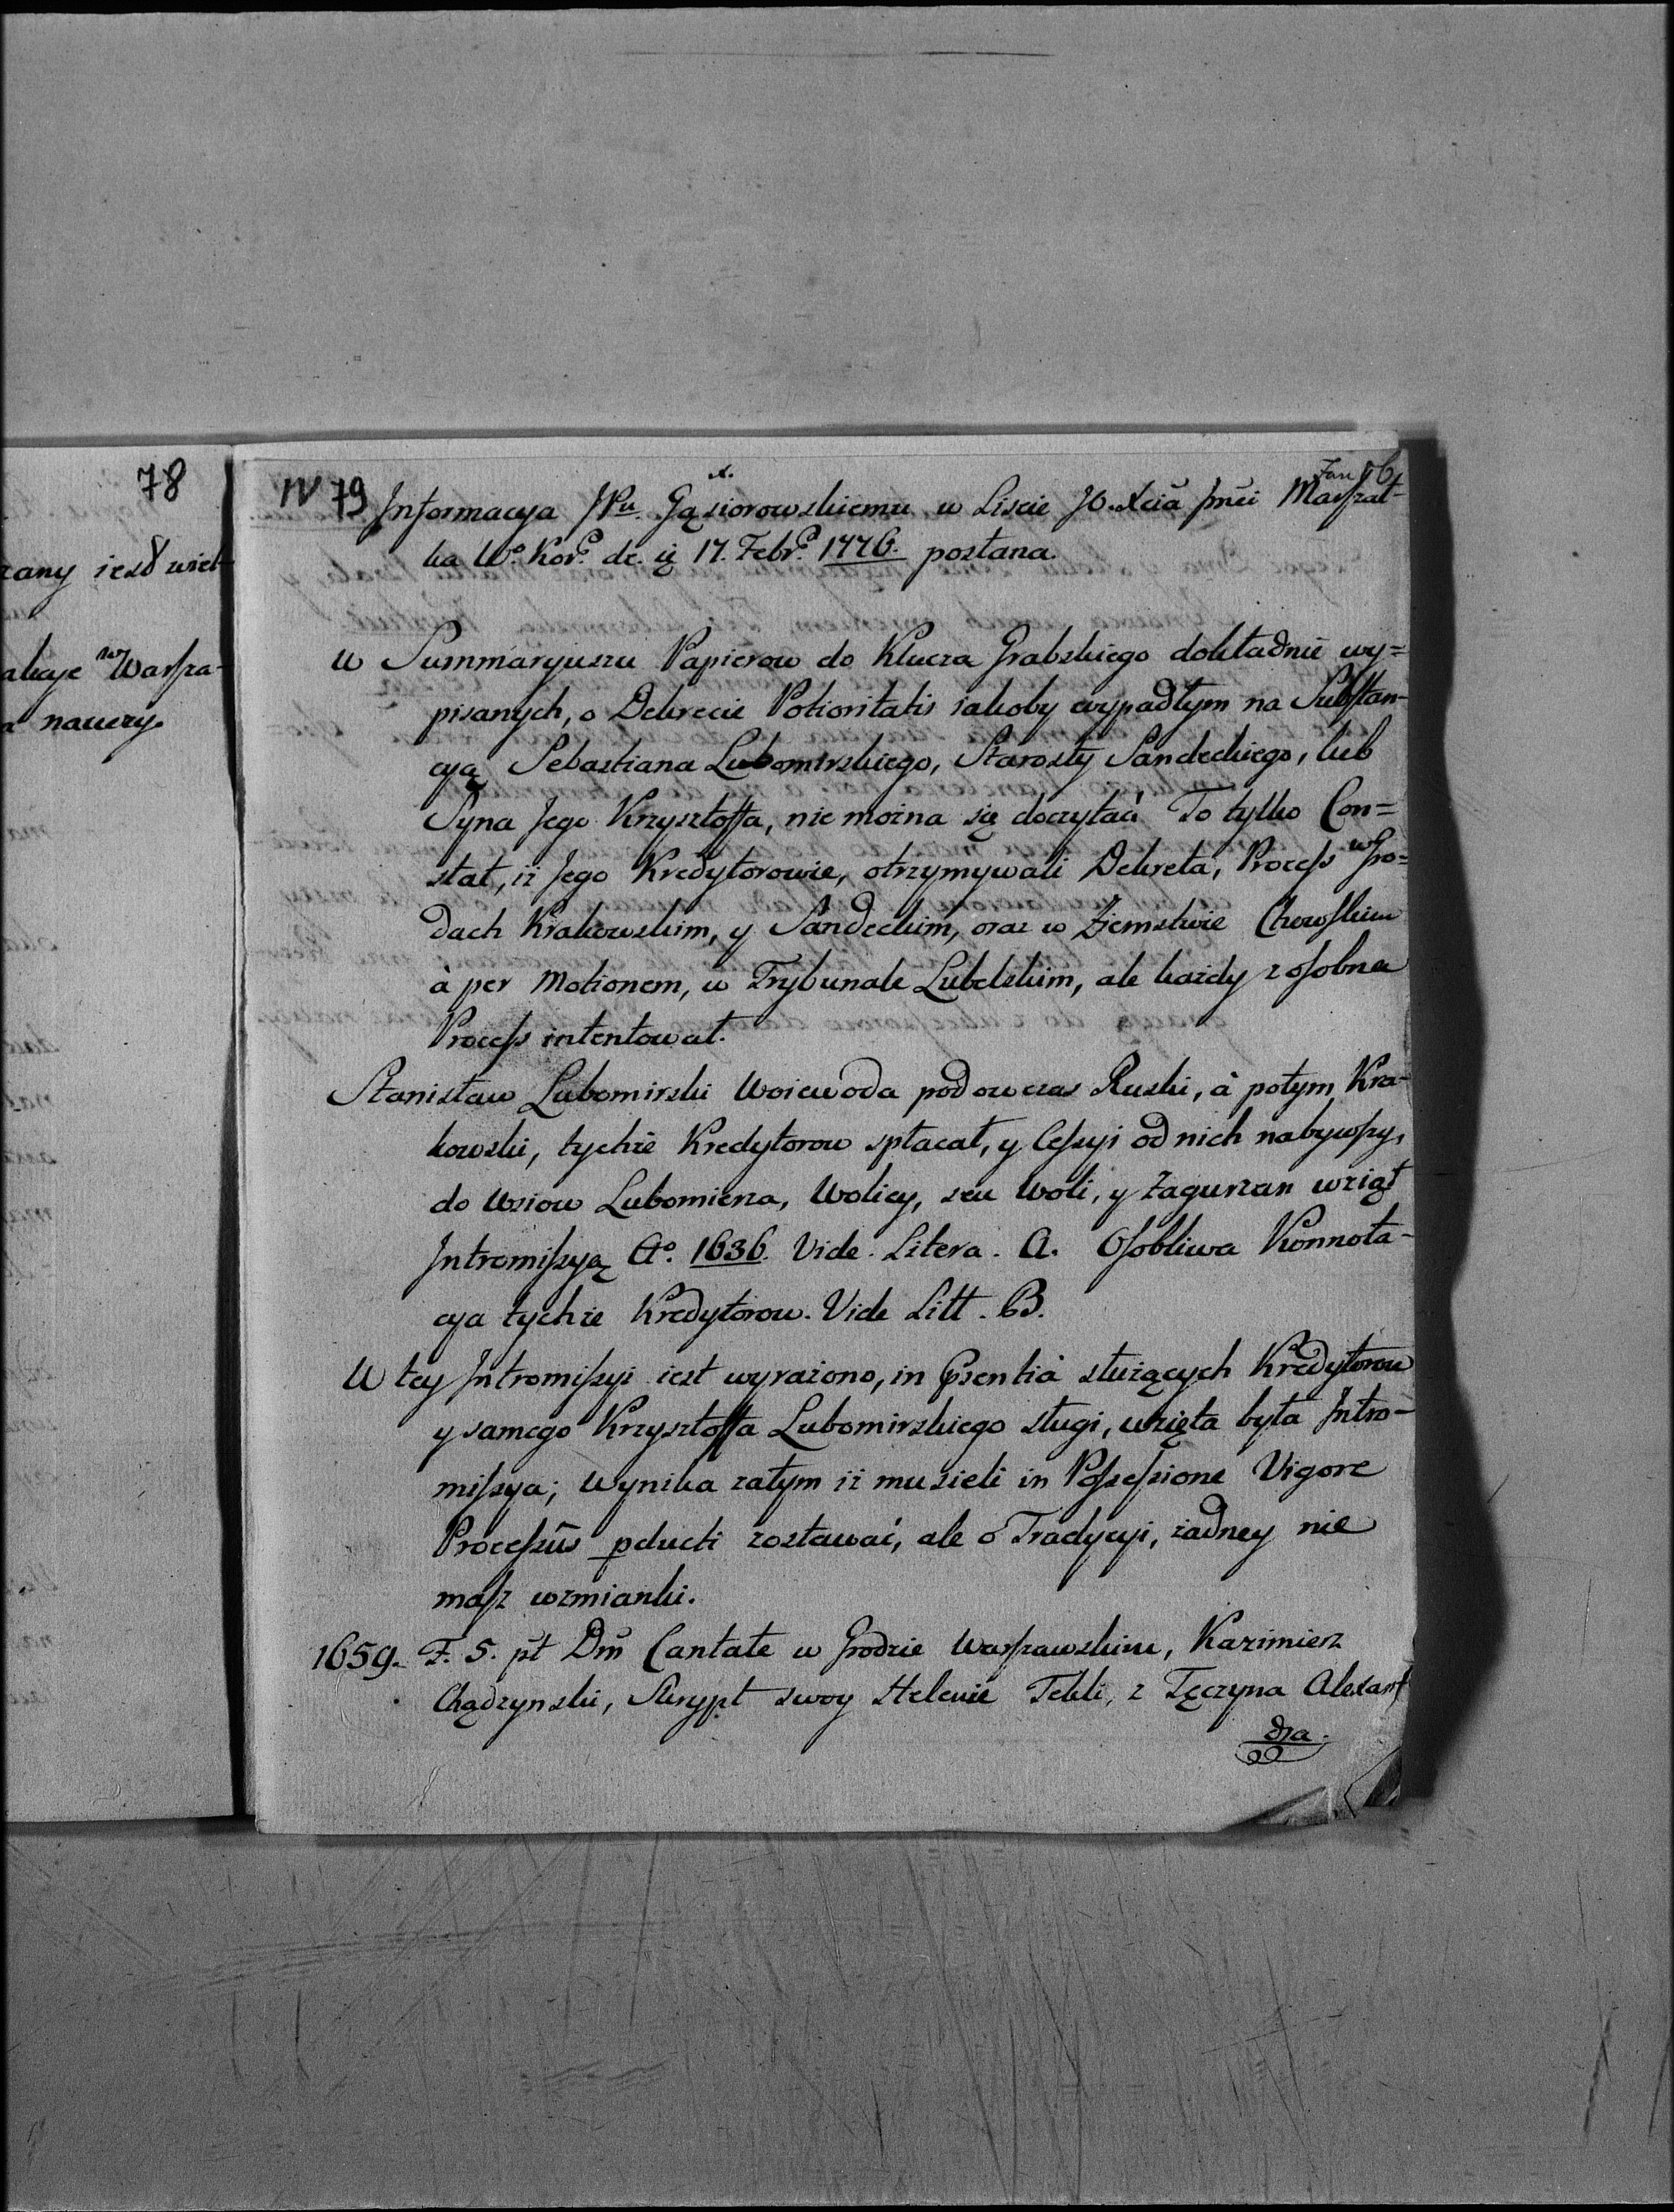 78
zany iest wiel-
akcye w Warsza-
a nauczy.
IV 79
Informacya JPu. Gąsiorowskiemu w Liscie JO. Xcia Jmći Marszał-
ka Wo. Kor. de. 17. Febr. 1776. posłana.
W Summaryuszu Papierow do Klucza Grabskiego dokładnie wy=
pisanych, o Dekrecie Potioritatis iakoby wypadłym na Substan-
cyą Sebastiana Lubomirskiego, Starosty Sandeckiego, lub
Syna Jego Krzysztoffa, nie można się doczytać. To tylko Con=
stat, iż Jego Kredytorowie, otrzymywali Dekreta, Process w Gro=
dach Krakowskim, y Sandeckim, oraz w Ziemstwie
à per Motionem, w Trybunale Lubelskim, ale każdy z osobna
Process intentował.
Stanisław Lubomirski Woiewoda podowczas Ruski, à potym Kra-
kowski, tychże Kredytorow spłacał, y Cessyi od nich nabywszy,
do Wsiow Lubomierza, Wolicy, seu Woli, y Zagurzan wziął
Intromissyą Ao. 1636. Vide. Litera. A. Osobliwa Konnota-
cya tychże Kredytorow. Vide Litt. B.
W tey Intromissyi iest wyrażono, in Psentià służących Kredytorow
y samego Krzysztoffa Lubomirskiego sługi, wzięta była Intro-
missya; Wynika zatym iż musieli in Possessione Vigore
Processûs pducti zostawać, ale o Tradycyi, żadney nie
masz wzmianki.
1659. F. 5. pt Dm Cantate w Grodzie Warszawskim, Kazimierz
Chądzynski, Skrypt swoy Helenie Tekli, z Tęczyna Alexan-
dra.